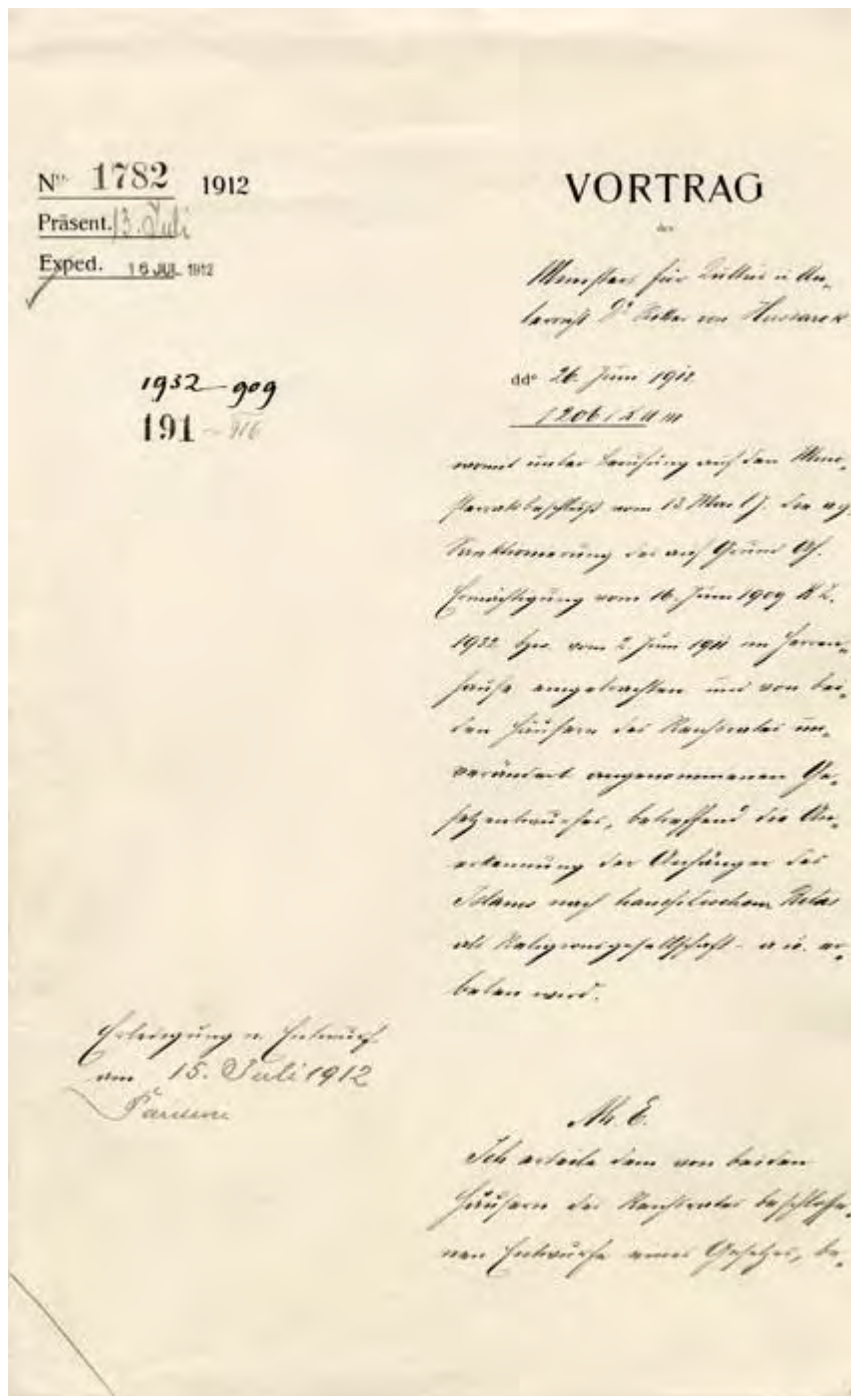 Nº 1782 1912
Präsent. 13. Juli
Exped. 16 JUL. 1912
1932 - 909
191 - 916
VORTRAG
des
Ministers für Kultus u Un-
terricht Dr Ritter von Hussarek
ddº 26. Juni 1912
womit unter Berufung auf den Mini-
sterratsbeschluß vom 13 Mai l J. die ag.
Sanktionierung des auf Grund Ah.
Ermächtigung vom 16. Juni 1909 K Z.
1932 bzw. vom 2. Juni 1911 im Herren-
hause eingebrachten und von bei-
den Häusern des Reichsrates un-
verändert angenommenen Ge-
setzentwurfes, betreffend die An-
erkennung der Anhänger des
Islams nach hanefitischem Ritus
als Religionsgesellschaft - a. u. er-
beten wird.
Erledigung n. Entwurf.
am 15. Juli 1912
Ah. E.
Ich erteile dem von beiden
Häusern des Reichsrates beschlosse-
nen Entwurfe eines Gesetzes, be-